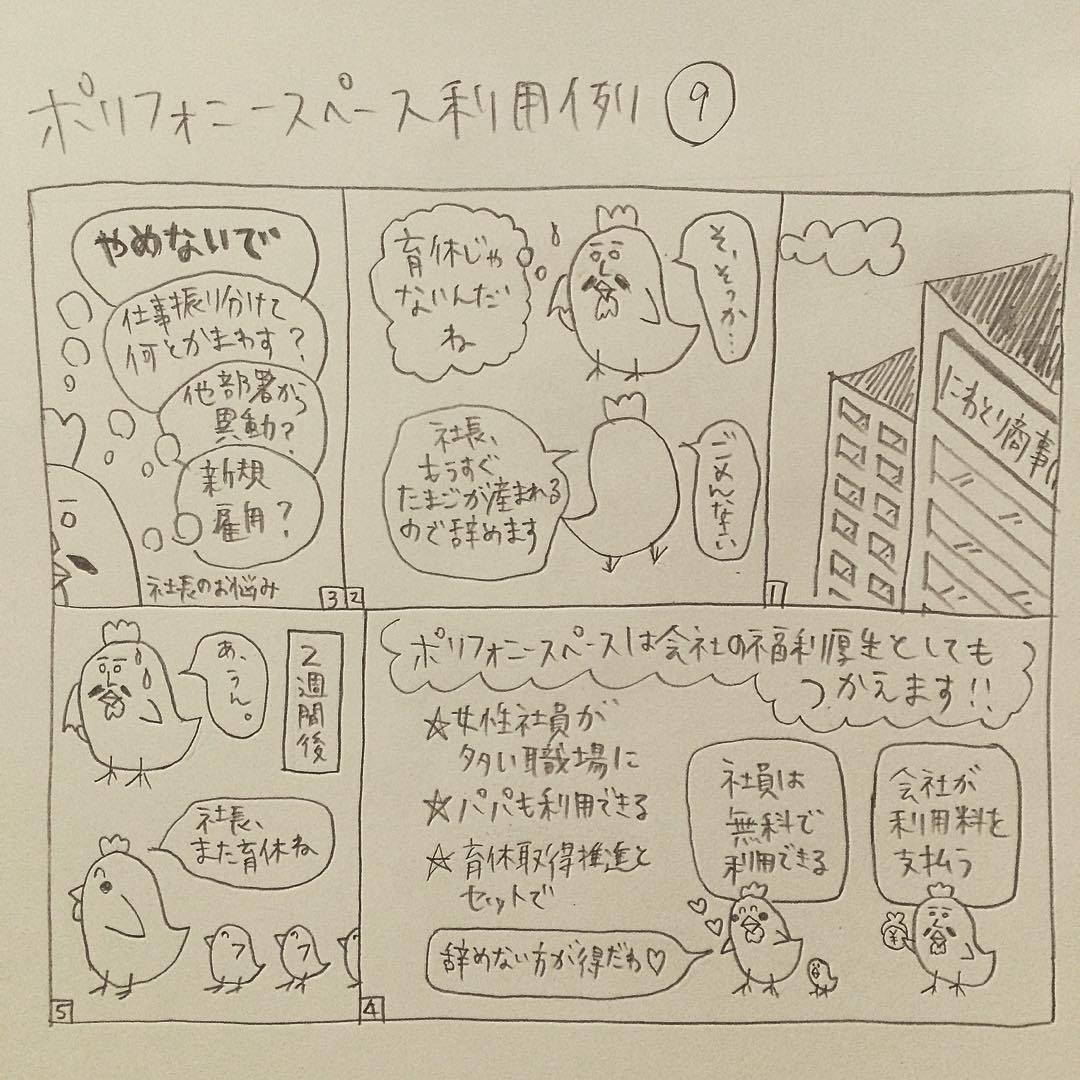 ポリフォニースペース利用例 ⑨
にわとり商事(
1
そ、そっか…
育休じゃ
ないんだ
ね
ごめんなさい
社長、
もうすぐ
たまごが産まれる
ので辞めます
2
やめないで
仕事振り分けて
何とかまわす?
他部署から
異動?
新規
雇用?
社長のお悩み
3
ポリフォニースペースは会社の福利厚生としても
つかえます!!
☆女性社員が
多い職場に
☆パパも利用できる
☆育休取得推進と
セットで
会社が
利用料を
支払う
社員は
無料で
利用できる
辞めない方が得だわ♡
4
2週間後
あ、うん。
社長、
また育休ね
5